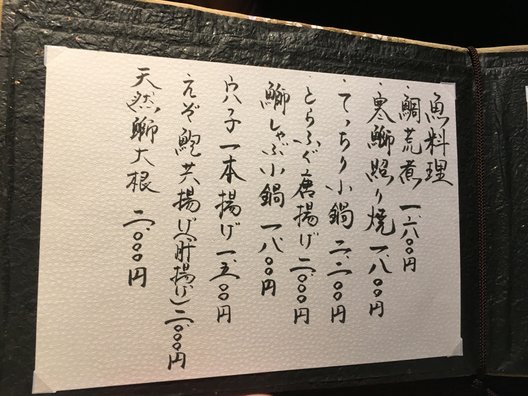 魚料理
・鯛荒煮 一、六〇〇円
・寒鰤照り焼 一、八〇〇円
・てっちり小鍋 二、二〇〇円
・とらふぐ唐揚げ 二、〇〇〇円
鰤しゃぶ小鍋 一、八〇〇円
・穴子一本揚げ 一、五〇〇円
・えぞ鮑共揚げ(肝揚げ) 二、〇〇〇円
天然鰤大根 二、〇〇〇円